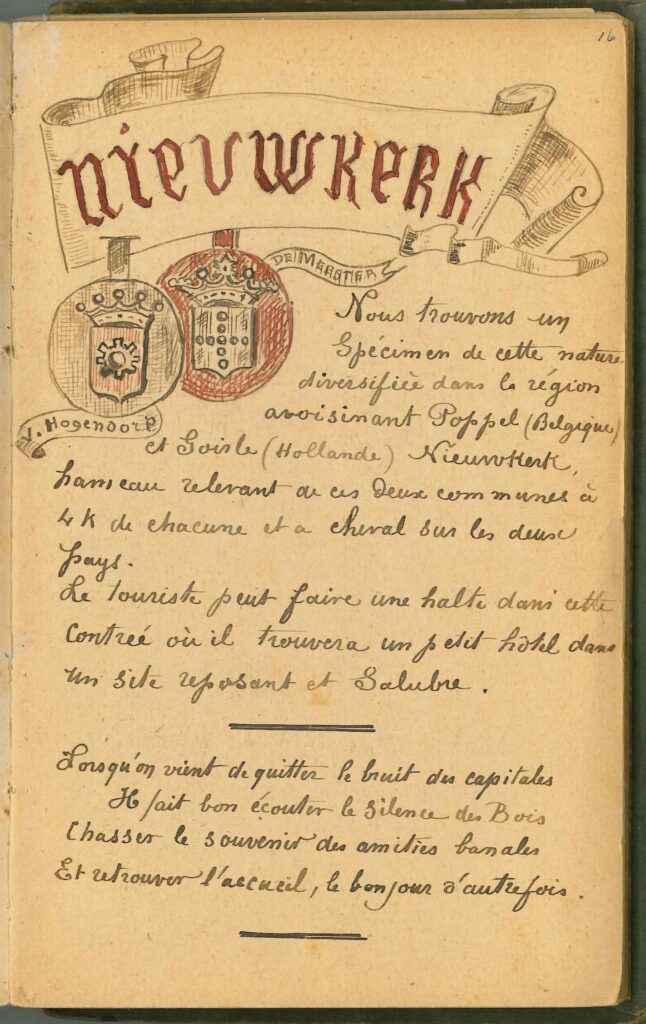 16
NIEUWKERK
DE MEESTER
v. Hogendorp
Nous trouvons un
Spécimen de cette nature
diversifiée dans la région
avoisinant Poppel (Belgique)
et Goirle (Hollande) Nieuwkerk,
hameau relevant de ces deux communes à
4 k de chacune et a cheval sur les deux
pays.
Le touriste peut faire une halte dans cette
contreé où il trouvera un petit hôtel dans
un site reposant et Salubre.
Lorsqu'on vient de quitter le bruit des capitales
Il fait bon écouter le silence des Bois
Chasser le souvenir des amitiés banales
Et retrouver l'accueil, le bonjour d'autrefois.